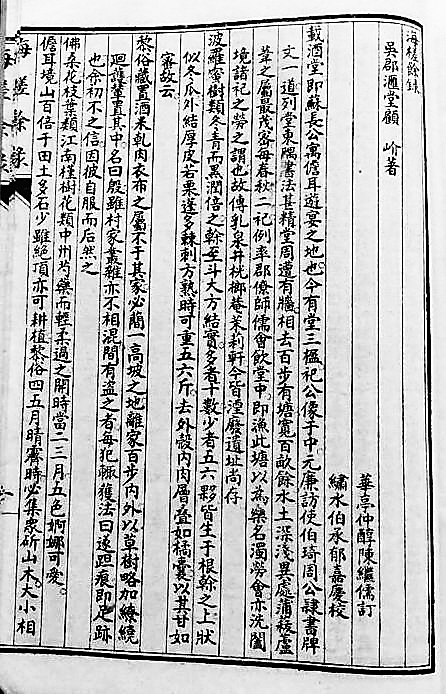 海槎餘錄
吳郡瀰堂顧　岕著
華亭仲醇陳繼儒訂
繡水伯承郁嘉慶校
載酒堂即蘇長公寓儋耳遊宴之地也今有堂三楹祀公像于中元廉訪使伯琦周公隷書牌
文一道列堂東隅書法甚精堂周遭有臘相去百步有塘寬百畝餘水土深淺異處蒲荻蘆
葦之屬最茂密每春秋二祀例率郡僚師儒會飲堂中即漁此塘以為樂名濁勞會亦洗闔
境諸祀之勞之謂也故傳乳泉井桄榔菴茉莉軒今皆湮廢遺址尚存
波羅蜜樹類冬青而黑潤倍之榦至斗大方結實多者十數少者五六夥皆生于根榦之上狀
似冬瓜外結厚皮若栗蓬多棘刺方熟時可重五六斤去外殼內肉層疊如橘囊以其甘如
蜜故云
黎俗藏置酒米乾肉衣布之屬不于其家必簡一高坡之地離家百步內外以草樹略加繚繞
迴護輦置其中名曰殷雖村家叢雜亦不相混間有盜之者每犯輒獲法曰遂跟痕即足跡
也余初不之信因彼自服而后然之
佛桑花枝葉類江南槿樹花類中州芍藥而輕柔過之開時當二三月五色婀娜可愛
儋耳境山百倍于田土多石少雖絕頂亦可耕植黎俗四五月晴霽時必集眾斫山木大小相
海槎餘錄